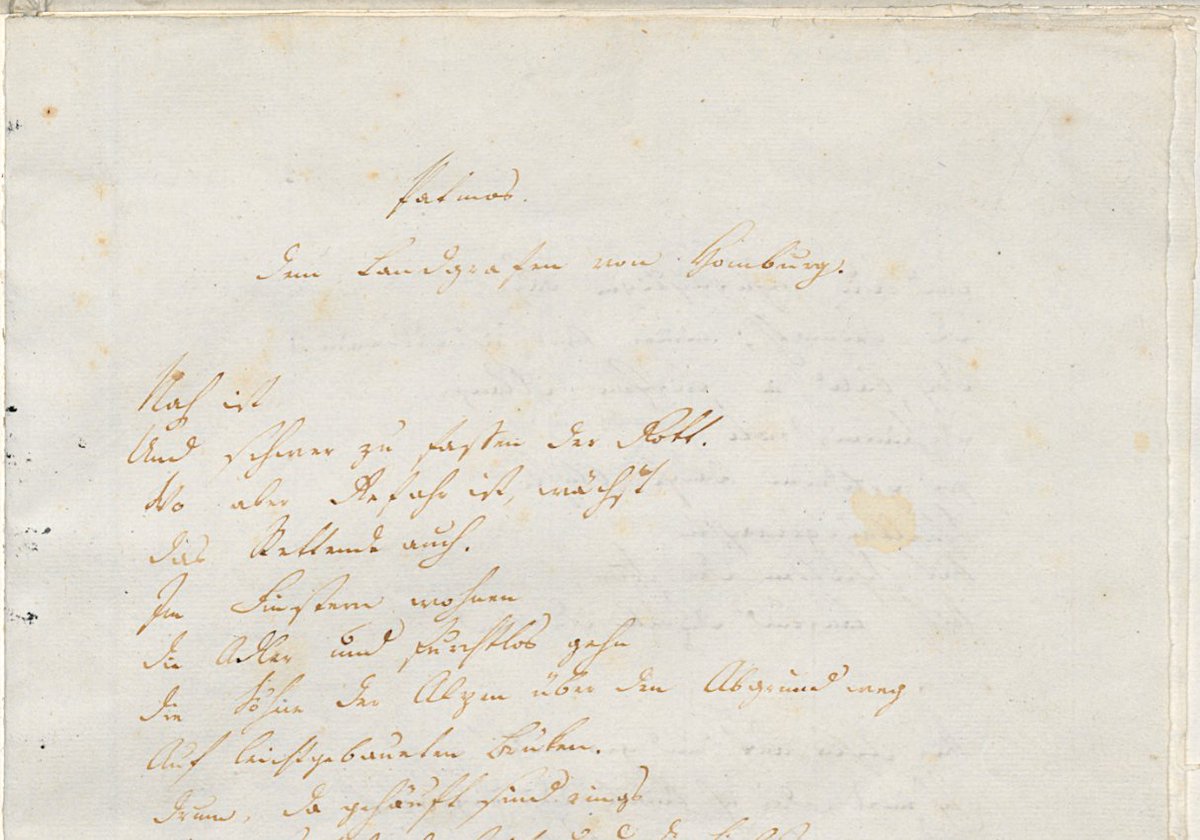 Patmos.
dem Landgrafen von Homburg.
Nah ist
Und schwer zu fassen der Gott.
Wo aber Gefahr ist, wächst
das Rettende auch.
Im Finstern wohnen
die Adler und furchtlos gehn
die Söhne der Alpen über den Abgrund weg
Auf leichtgebaueten Brüken.
drum, da gehäuft sind rings